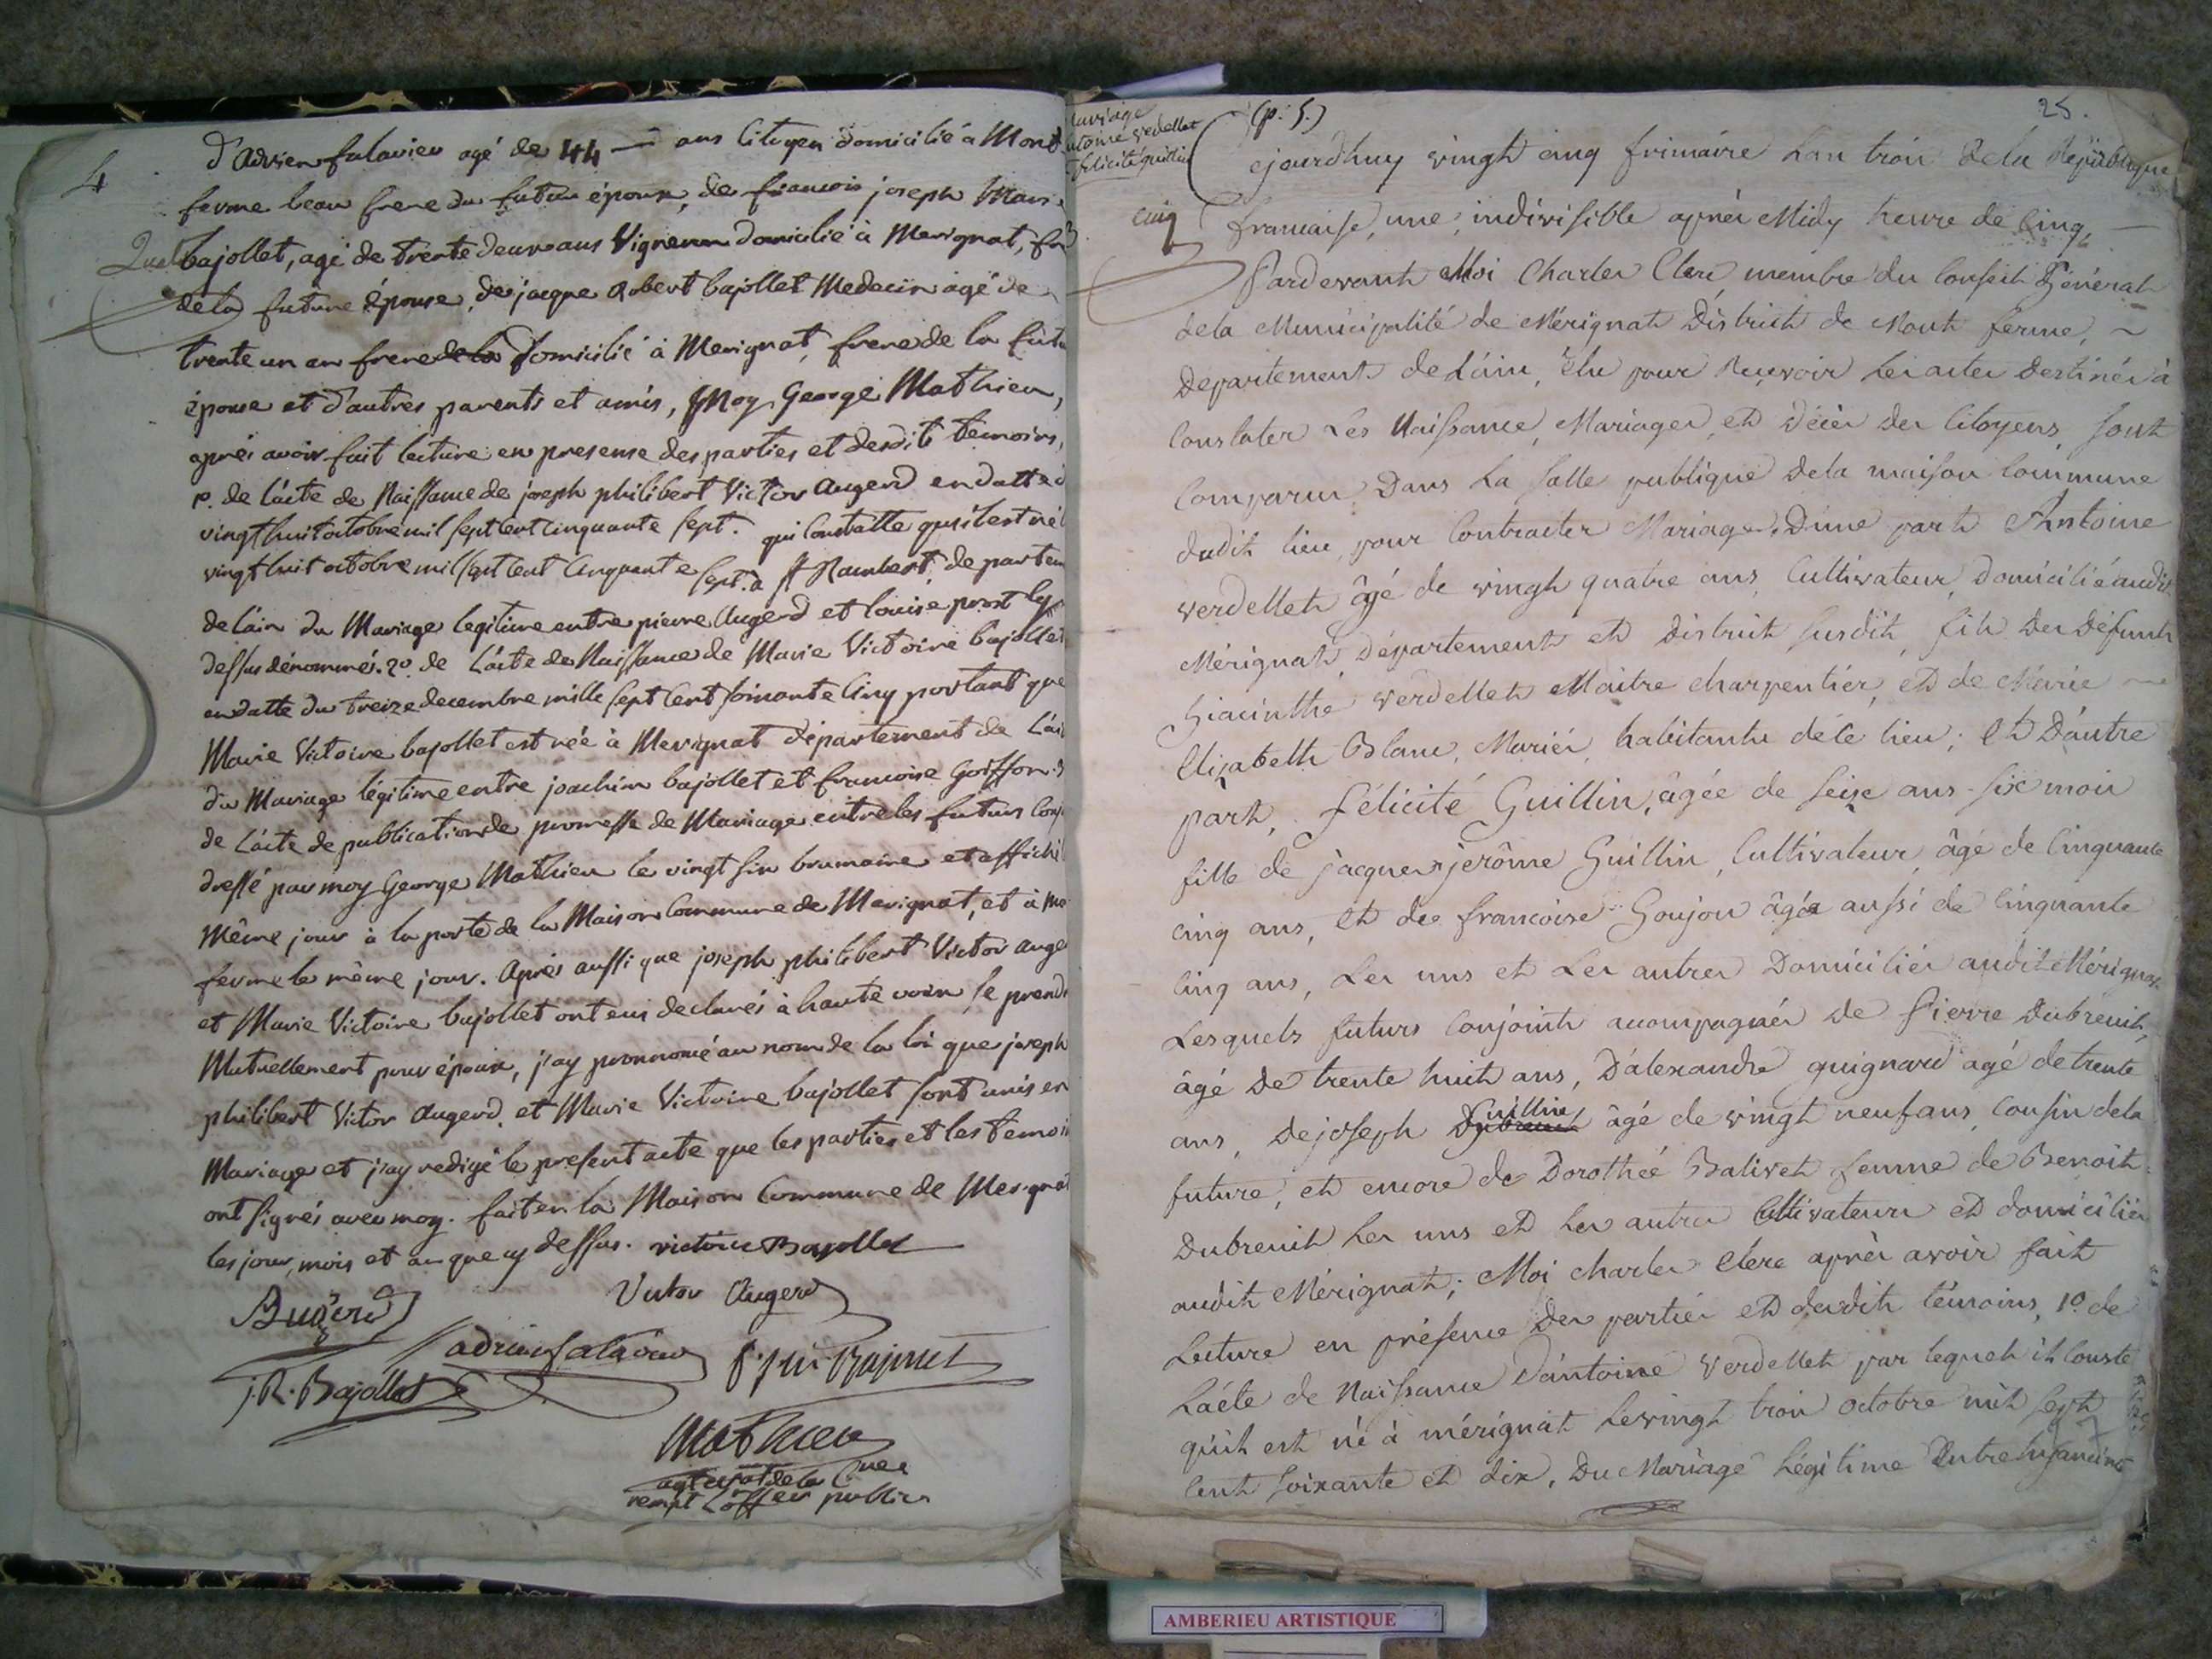 4
d'Adrien falavier agé de 44 — ans Citoyen domicilié à Mont
ferme beau frere du futur époux, de francois joseph Marie
bajollet, agé de trente deux ans Vigneron domicilié à Merignat, fr
de la future épouse, de jacque Robert bajollet Medecin agé de
trente un an frere de la domicilié à Merignat, frere de la futu
épouse et d'autres parents et amis, Moy George Mathieu,
aprés avoir fait lecture en presense des parties et desdits temoins,
1º. de l'acte de Naissance de joseph philibert Victor Augerd en datte d
vingt huit octobre mil sept cent cinquante sept. qui Constatte qu'il est né l
vingt huit octobre mil sept cent cinquante sept. à St Rambert, departem
de l'ain du Mariage legitime entre pierre Augerd et louise prost cy
dessus dénommés. 2º. de l'acte de Naissance de Marie Victoire bajollet
en datte du treize decembre mille sept cent soixante Cinq portant que
Marie Victoire bajollet est née à Merignat département de L'ai
du Mariage légitime entre joachim bajollet et francoise Goiffon. 3
de L'acte de publication de promesse de Mariage entre les futurs Conj
dressé par moy George Mathieu le vingt six brumaire et affiché l
Même jour à la porte de la Maison Commune de Merignat, et à Mo
ferme le même jour. Aprés aussi que joseph philibert Victor auge
et Marie Victoire bajollet ont eus declarés à haute voix se prend
Mutuellement pour époux, j'ay prononcé au nom de la loi que joseph
philibert Victor Augerd et Marie Victoire bajollet sont unis en
Mariage et j'ay redigé le present acte que les parties et les temoi
ont signés avec moy. fait en la Maison Commune de Merignat
les jour, mois et an que cy dessus. victoire Bajollet
Victor Augerd
Augerd
adrien falavier
j. R. Bajollet
Mathieu
officier public
Mariage
antoine verdellet
felicité guillin
(p: 5.)
25.
cinq
Cejourd'huy vingt cinq frimaire L'an trois de la République
francaise, une, indivisible aprés Midy heure de Cinq, —
Pardevant Moi Charles Clerc membre du Conseil Général
de la Municipalité de Mérignat District de Mont ferme, ~
Département de L'ain, élu pour Recevoir Les actes Destinés à
Constater Les Naissance, Mariages, et Décès des Citoyens, sont
Comparus Dans La salle publique de la maison Commune
dudit lieu, pour Contracter Mariage; D'une part Antoine
verdellet âgé de vingt quatre ans, Cultivateur, Domicilié audit
Mérignat, Département et District susdit, fils des Défunts
hiacinthe verdellet Maitre charpentier, et de Marie ~
Elizabeth Blanc, Mariés, habitants de ce lieu; et D'autre
part, félicité Guillin, âgée de seize ans six mois
fille de jacques jerôme Guillin, Cultivateur, âgé de Cinquante
cinq ans, et de francoise Goujon âgée aussi de Cinquante
Cinq ans, Les uns et Les autres Domiciliés audit Mérignat.
Lesquels futurs Conjoints accompagnés de Pierre Dubreuil,
âgé de trente huit ans, D'alexandre guignard agé de trente
Guillin
ans, De joseph Dubreuil âgé de vingt neuf ans, Cousin de la
future, et encore de Dorothée Balivet femme de Benoit
Dubreuil Les uns et Les autres Cultivateurs et domiciliés
audit Mérignat; Moi charles Clerc aprés avoir fait
Lecture en présence des parties et desdits témoins, 1º. de
L'acte de Naissance d'antoine verdellet par lequel il Conste
qu'il est né à mérignat Le vingt trois octobre mil sept
Cent soixante et dix, Du Mariage Légitime Entre hyacinte
AMBERIEU ARTISTIQUE